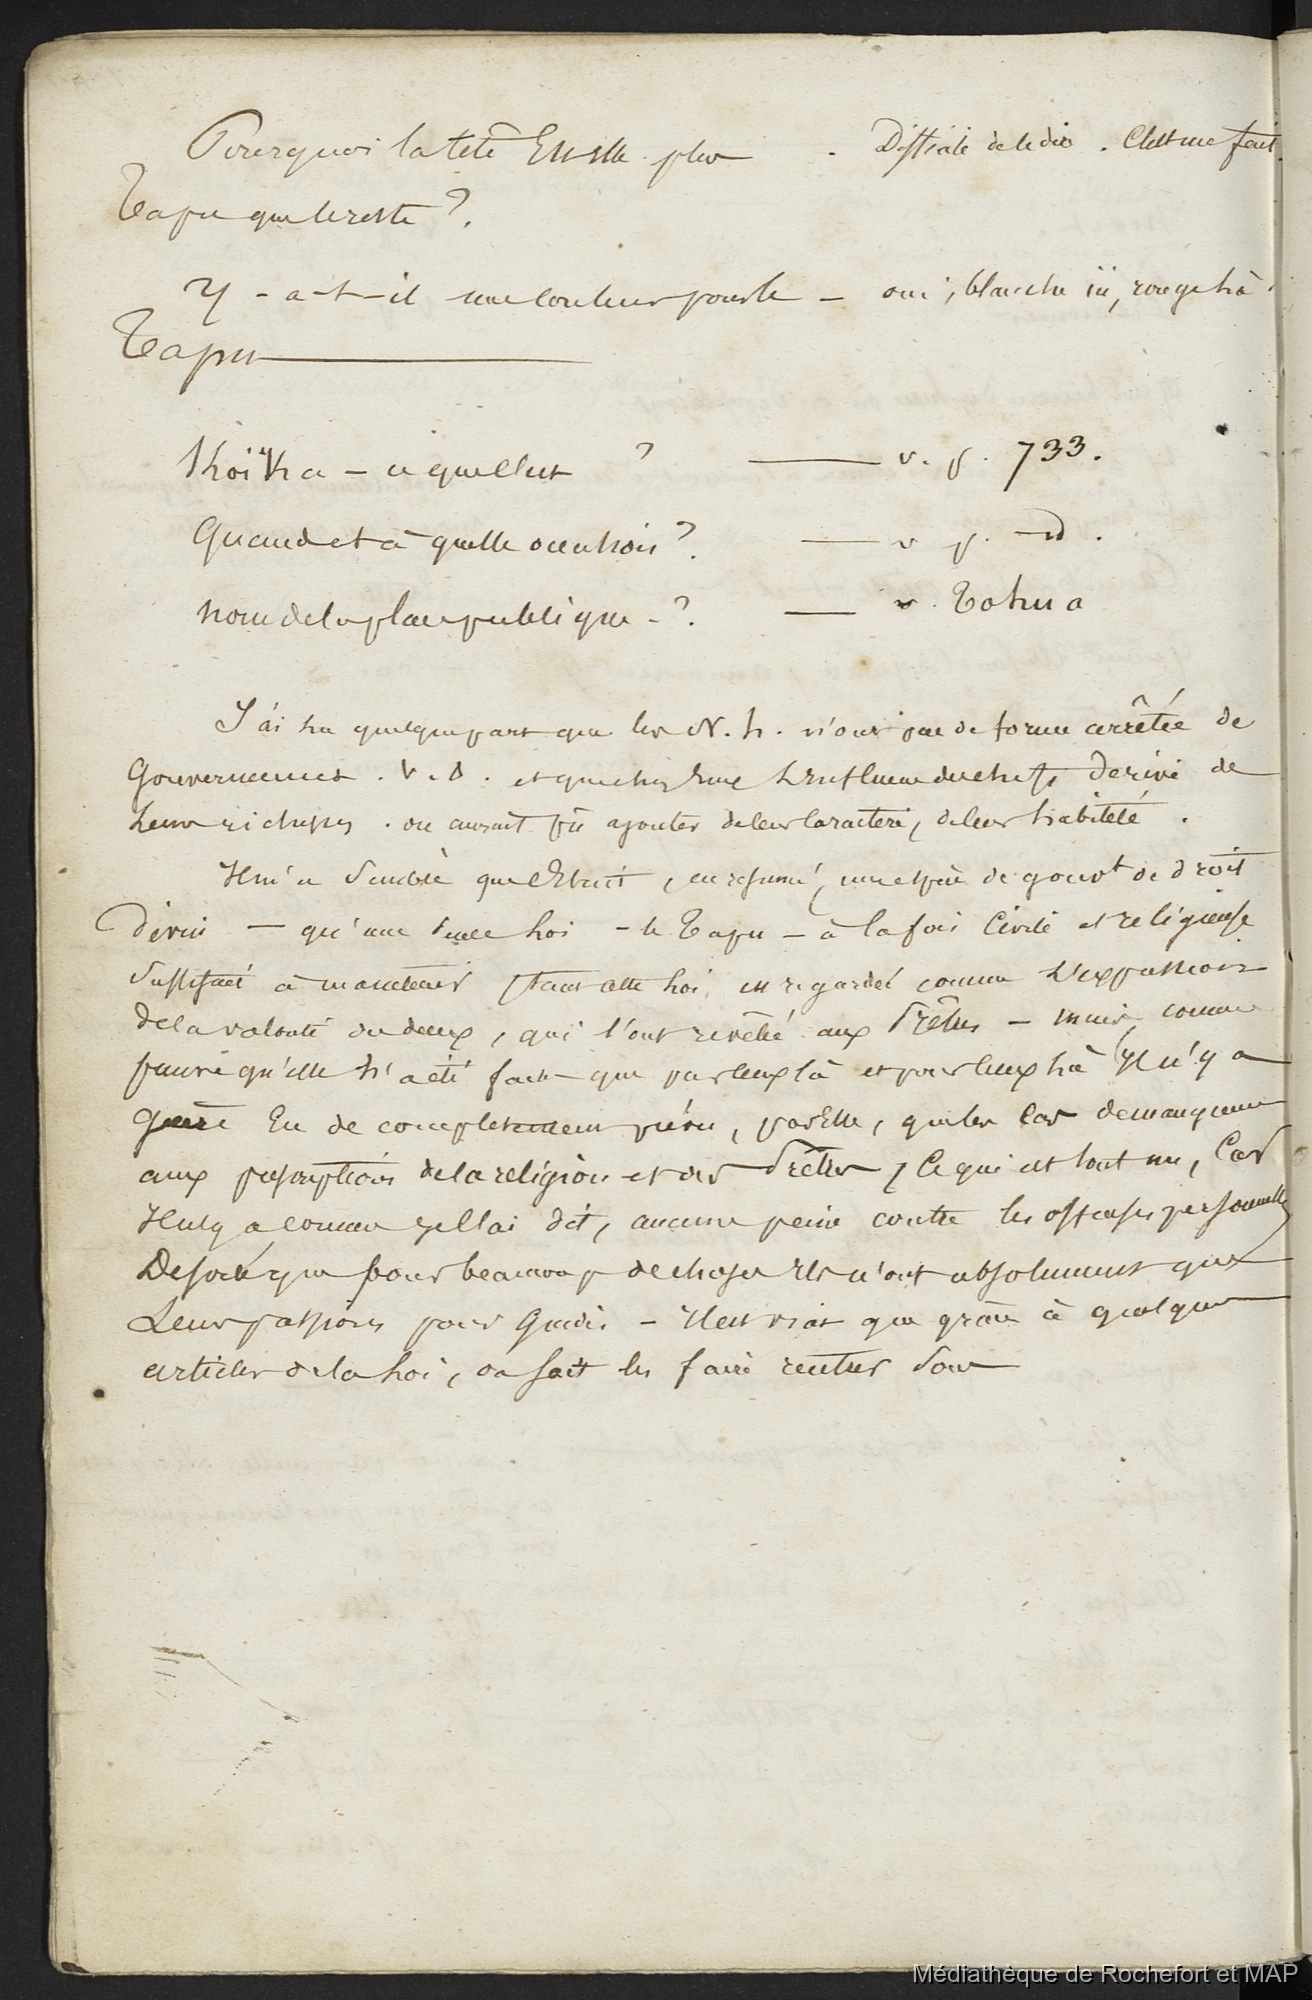 Pourquoi la tête Est elle plus . Difficile de le dire . C'est un fait.
Tapu que le reste ?.
Y - a-t-il une couleur pour le - oui, blanche ici, rouge là.
Tapu
Koïka - ce que c'est ? v. p. 733.
Quand et à quelle occasion ?. v p. d .
nom de la place publique - ?. v. Tohua
J'ai lu quelque part que les N. h. n'ont pas de forme arrêtée de
Gouvernement . V. D . et que chez Eux L'influence des chefs Derive de
Leurs richesses . on aurait pû ajouter de leur Caractère, de leur habileté .
Il m'a Semblé que C'Etait, en resumé, une espèce de gouvt de droit
divin - qu'une seule Loi - le Tapu - à la fois Civile et religieuse
Suffisait à maintenir, Etant cette Loi regardée comme L'expression
de la volonté des dieux, qui l'ont revélée aux Prêtres - mais, comme
parce qu'elle n'a été faite que par ceux là et pour ceux là Il n'y a
guère Eu de completement prévu, par Elle, que les Cas de manquement
aux prescriptions de la religion et des Prêtres, Ce qui est tout un, Car
Il n'y a comme je l'ai dit, aucune peine contre les offenses personnelles
De sorte que pour beaucoup de choses Ils n'ont absolument que
Leurs passions pour Guides - Il est vrai que grâce à quelques
articles de la Loi, on sait les faire rentrer sous
Médiathèque de Rochefort et MAP